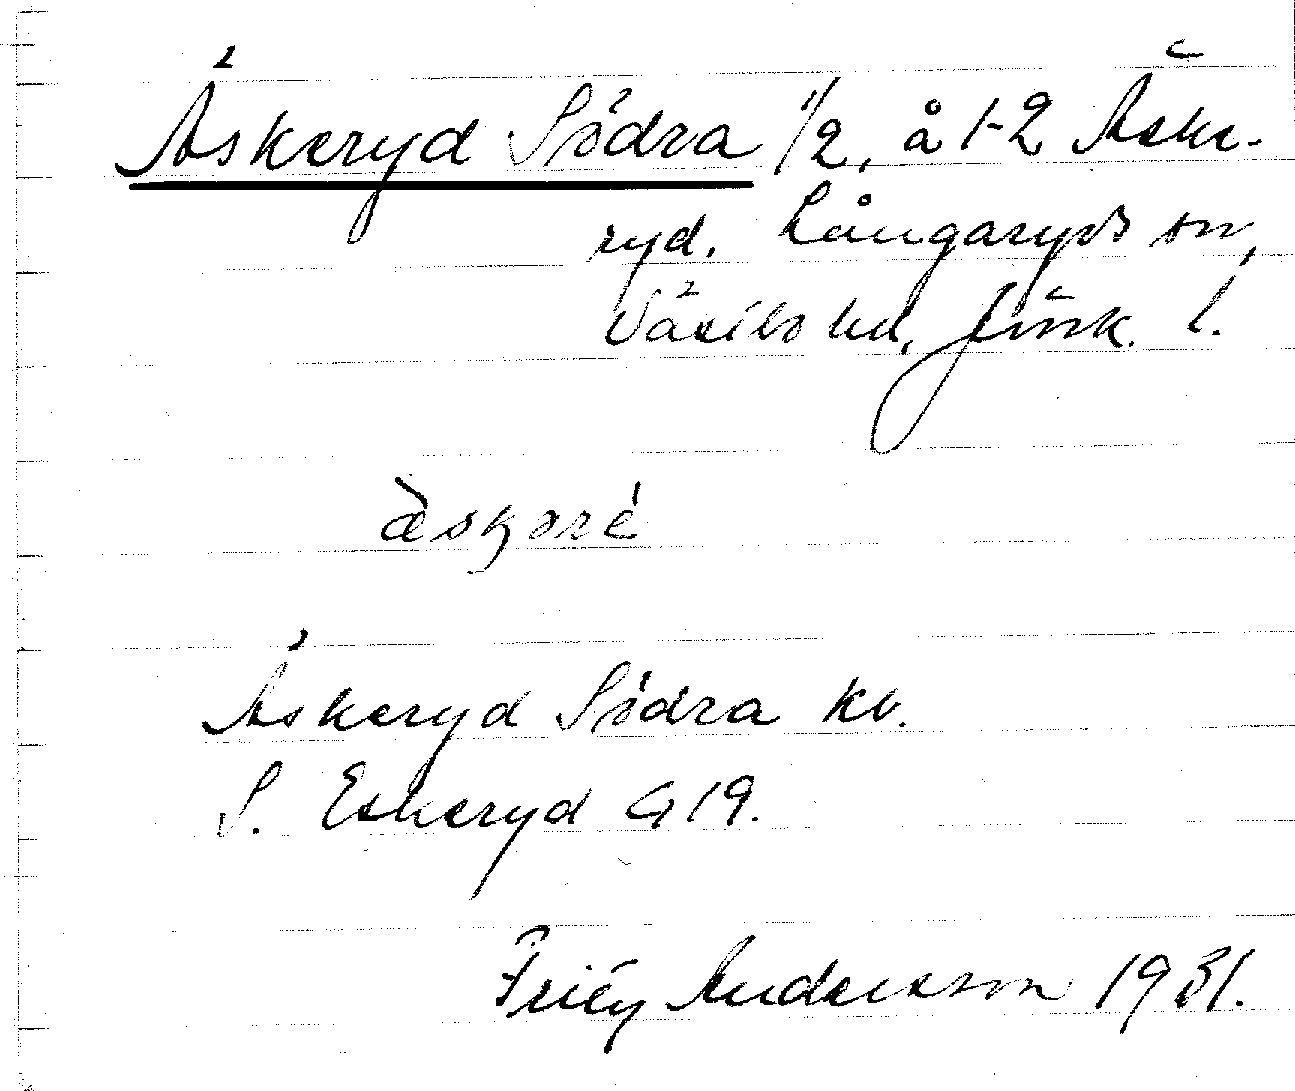 Äskeryd Södra 1/2, å 1-2 Äske-
ryd. Långaryds sn,
Västbo hd, Jönk. l.
Äskeryd Södra kv.
S. Eskeryd G 19.
Andersson 1931.